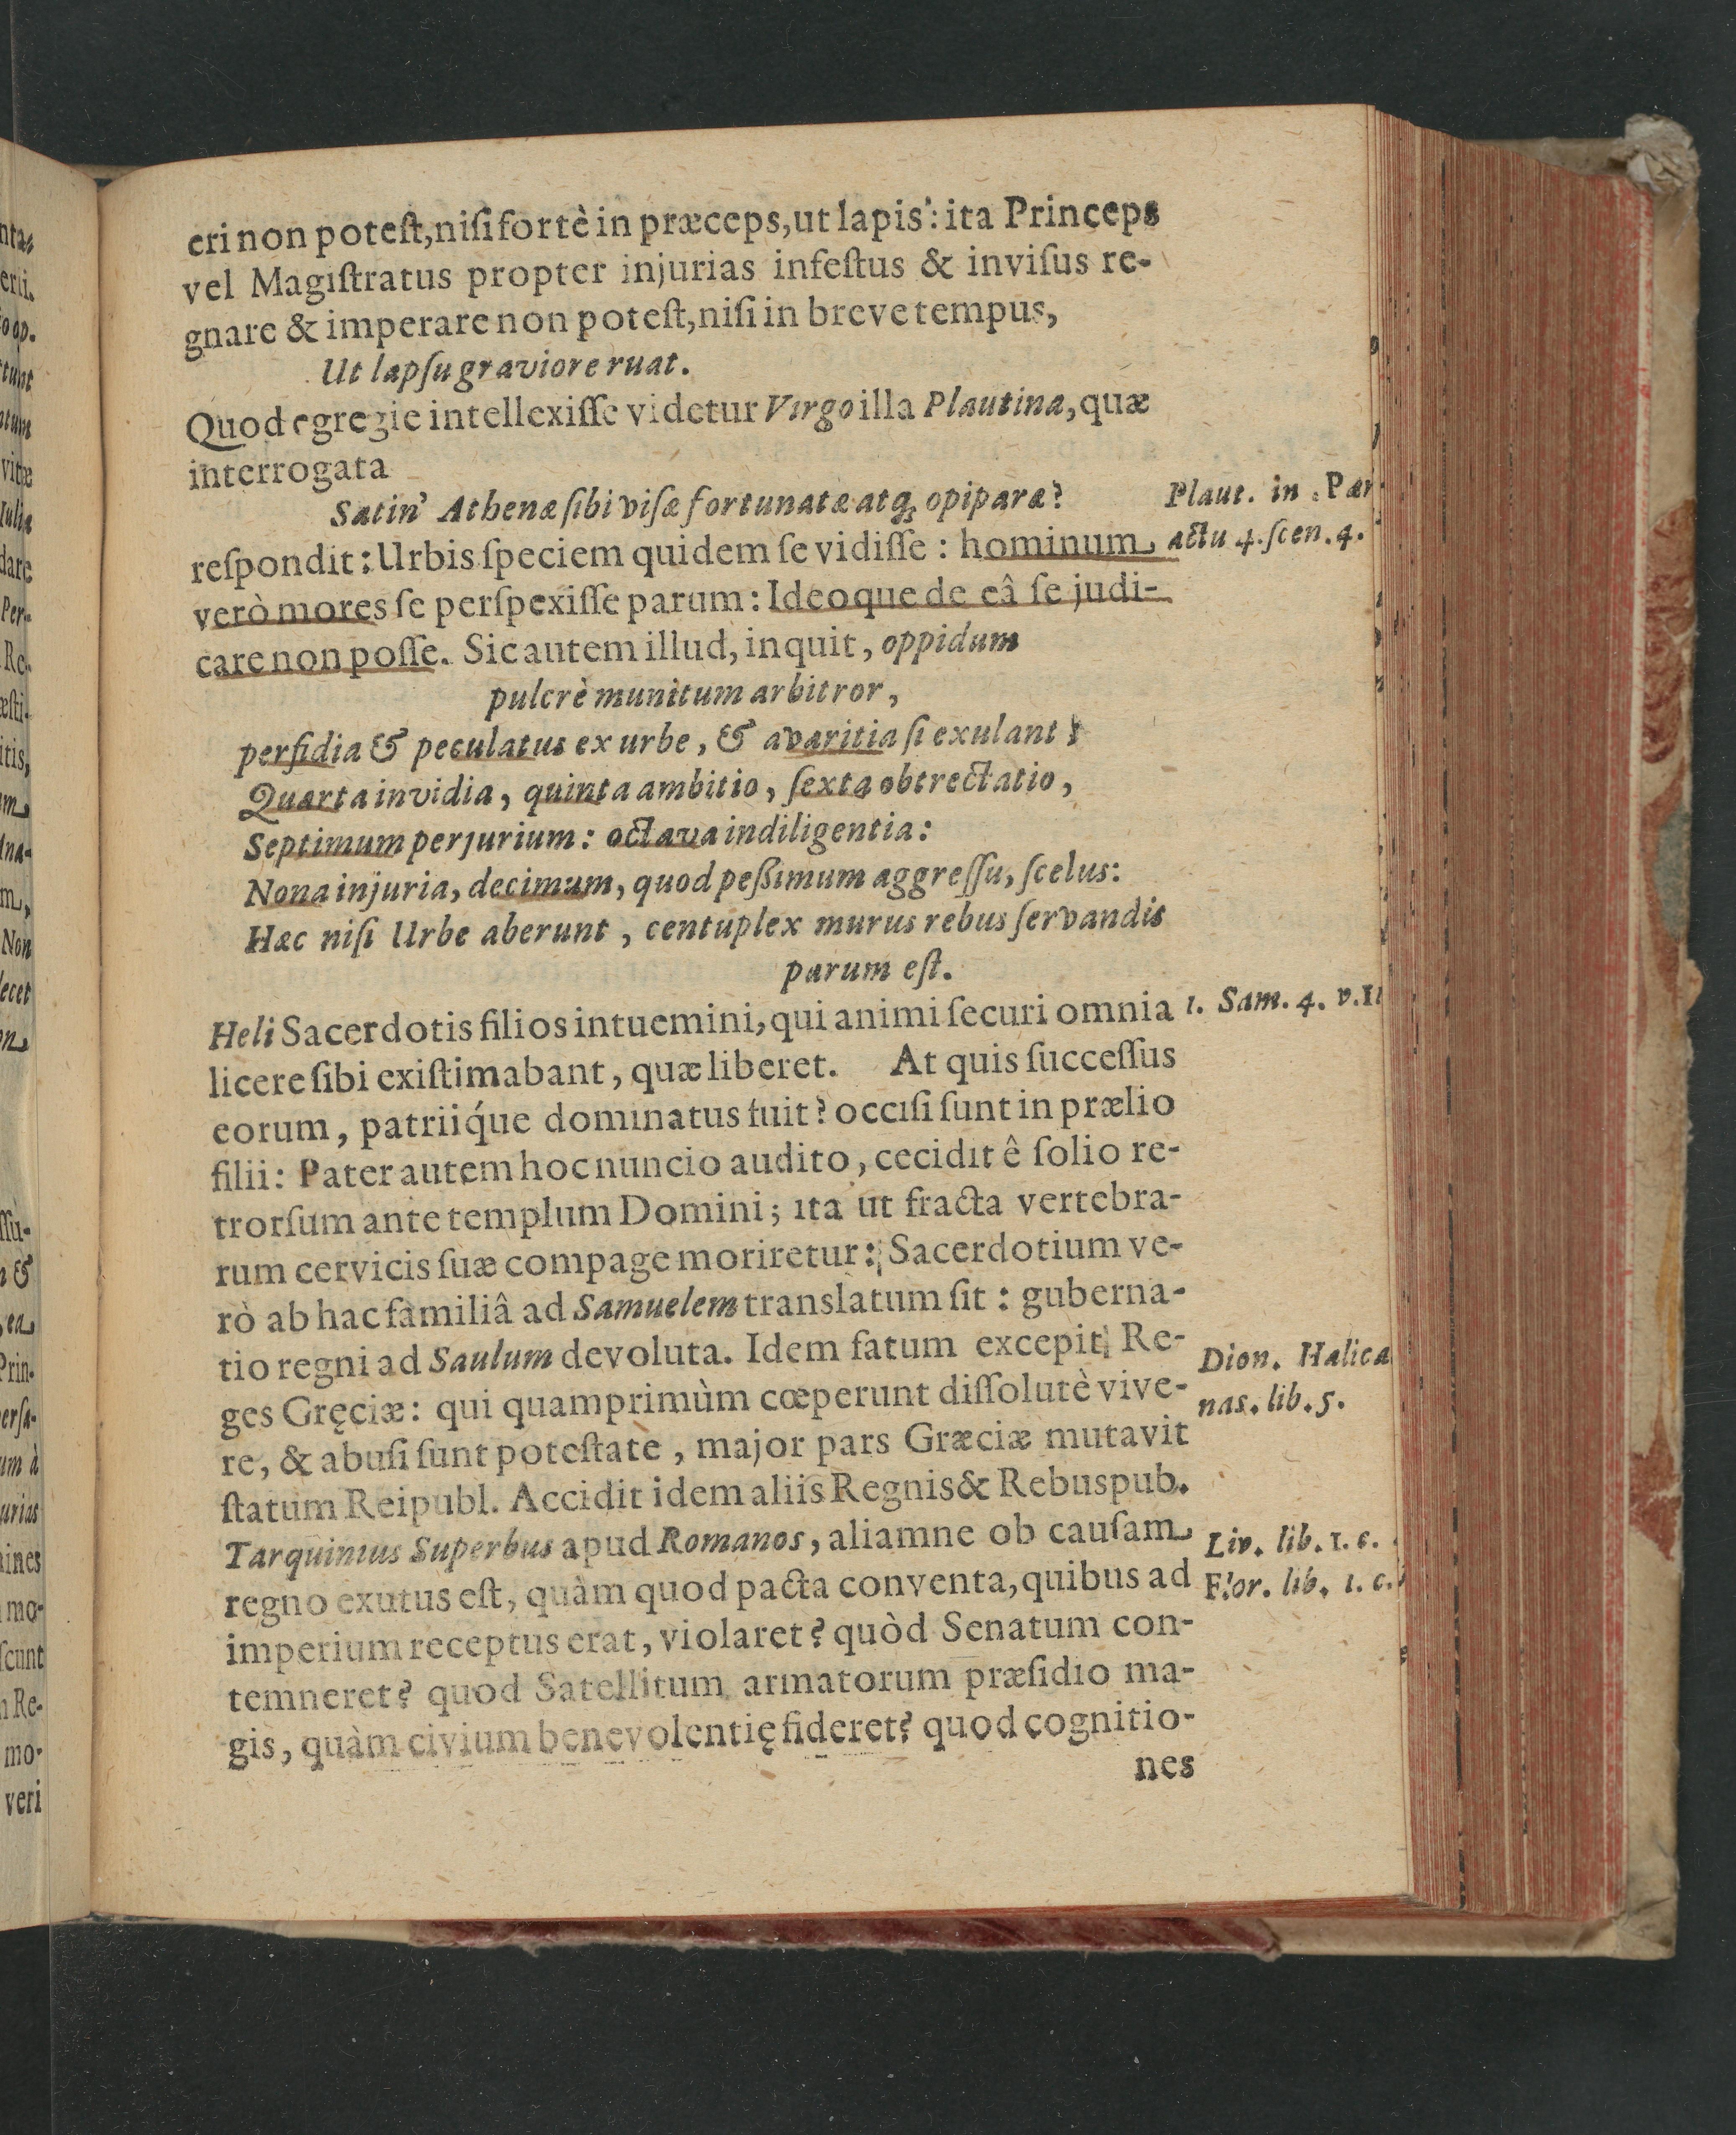 eri non potest, nisi fortè in præceps, ut lapis: ita Princeps
vel Magistratus propter injurias infestus & invisus re-
gnare & imperare non potest, nisi in breve tempus,
Ut lapsu graviore ruat.
Quod egregie intellexisse videtur Virgo illa Plautina, quæ
interrogata
Satin' Athenæ sibi visæ fortunatæ atq; opiparæ?
Plaut. in Per
respondit: Urbis speciem quidem se vidisse: hominum
actu 4. scen. 4.
verò mores se perspexisse parum: Ideoque de eâ se judi-
care non posse. Sic autem illud, inquit, oppidum
pulcrè munitum arbitror,
perfidia & peculatus ex urbe, & avaritia si exulant;
Quarta invidia, quinta ambitio, sexta obtrectatio,
Septimum perjurium: octava indiligentia:
Nona injuria, decimum, quod peßimum aggressu, scelus:
Hæc nisi Urbe aberunt, centuplex murus rebus servandis
parum est.
Heli Sacerdotis filios intuemini, qui animi securi omnia
1. Sam. 4. v. 11
licere sibi existimabant, quæ liberet. At quis successus
eorum, patriiq́ue dominatus fuit? occisi sunt in prælio
filii: Pater autem hoc nuncio audito, cecidit ê solio re-
trorsum ante templum Domini; ita ut fracta vertebra-
rum cervicis suæ compage moriretur: Sacerdotium ve-
rò ab hac familiâ ad Samuelem translatum sit: guberna-
tio regni ad Saulum devoluta. Idem fatum excepit Re-
Dion. Halica
ges Gręciæ: qui quamprimùm cœperunt dissolutè vive-
nas. lib. 5.
re, & abusi sunt potestate, major pars Græciæ mutavit
statum Reipubl. Accidit idem aliis Regnis & Rebuspub.
Tarquinius Superbus apud Romanos, aliamne ob causam
Liv. lib. 1. c.
regno exutus est, quàm quod pacta conventa, quibus ad
Flor. lib. 1. c.
imperium receptus erat, violaret? quòd Senatum con-
temneret? quod Satellitum armatorum præsidio ma-
gis, quàm civium benevolentię fideret? quod cognitio-
nes